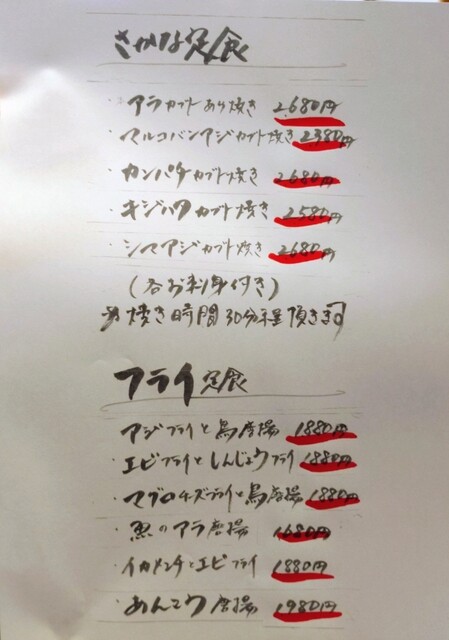 さかな定食
・アラカブトあら焼き 2,680円
・マルコバンアジカブト焼き 2380円
・カンパチカブト焼き 2680円
・キジハタカブト焼き 2580円
・シマアジカブト焼き 2680円
(各お刺身付き)
※焼き時間30分程頂きます。
フライ定食
アジフライと鳥唐揚 1880円
エビフライとしんじょうフライ 1880円
・マグロチーズフライと鳥唐揚 1880円
・魚のアラ唐揚 1680円
・イカメンチとエビフライ 1880円
・あんこう唐揚 1980円